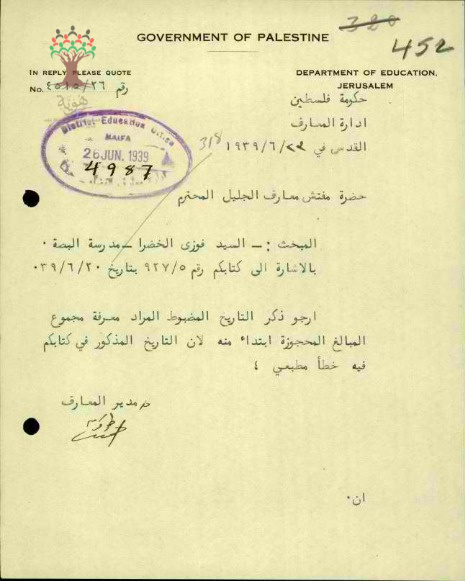 320
452
GOVERNMENT OF PALESTINE
IN REPLY PLEASE QUOTE
No. ٤٥١٥/٢٦ رقم
DEPARTMENT OF EDUCATION,
JERUSALEM
هوية
حكومة فلسطين
ادارة المعارف
القدس في ٢٢/٦/١٩٣٩
318
District Education Office
HAIFA
26 JUN. 1939
4987
حضرة مفتش معارف الجليل المحترم
المبحث :- السيد فوزى الخضرا - مدرسة البصة ٠
بالاشارة الى كتابكم رقم ٩٢٧/٥ بتاريخ ٣٩/٦/٢٠٠
ارجو ذكر التاريخ المضبوط المراد معرفة مجموع
المبالغ المحجوزة ابتداء منه لان التاريخ المذكور في كتابكم
فيه خطأ مطبعي ٤
مدير المعارف
ان٠